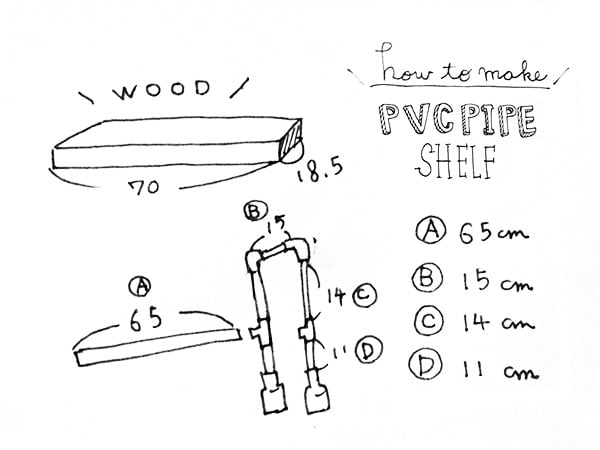 \ WOOD /
70
18.5
how to make
PVC PIPE
SHELF
Ⓑ
15
Ⓐ
65
14 Ⓒ
11 Ⓓ
Ⓐ 65cm
Ⓑ 15 cm
Ⓒ 14 cm
Ⓓ 11 cm